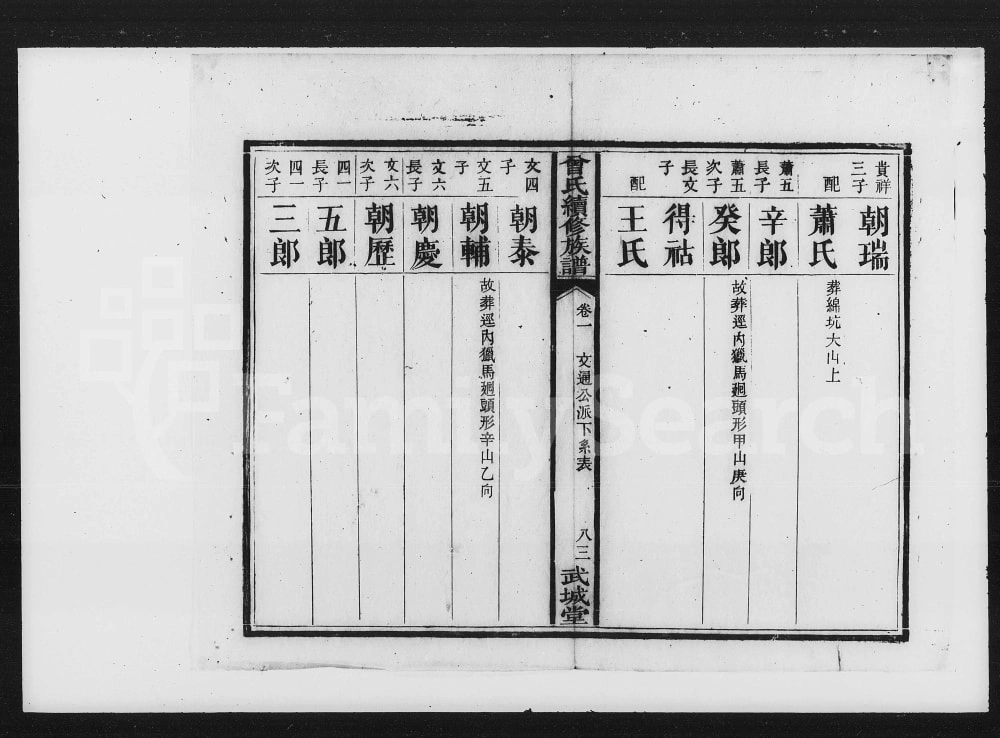 貴祥三子 朝瑞
配 蕭氏 葬綿坑大山上
蕭五長子 辛郎
蕭五次子 癸郎 故葬逕內獵馬廻頭形甲山庚向
長文子 得祜
配 王氏
曾氏續修族譜 卷一 文通公派下系表 八三 武城堂
文四子 朝泰
文五子 朝輔 故葬逕內獵馬廻頭形辛山乙向
文六長子 朝慶
文六次子 朝歷
四一長子 五郎
四一次子 三郎
FamilySearch